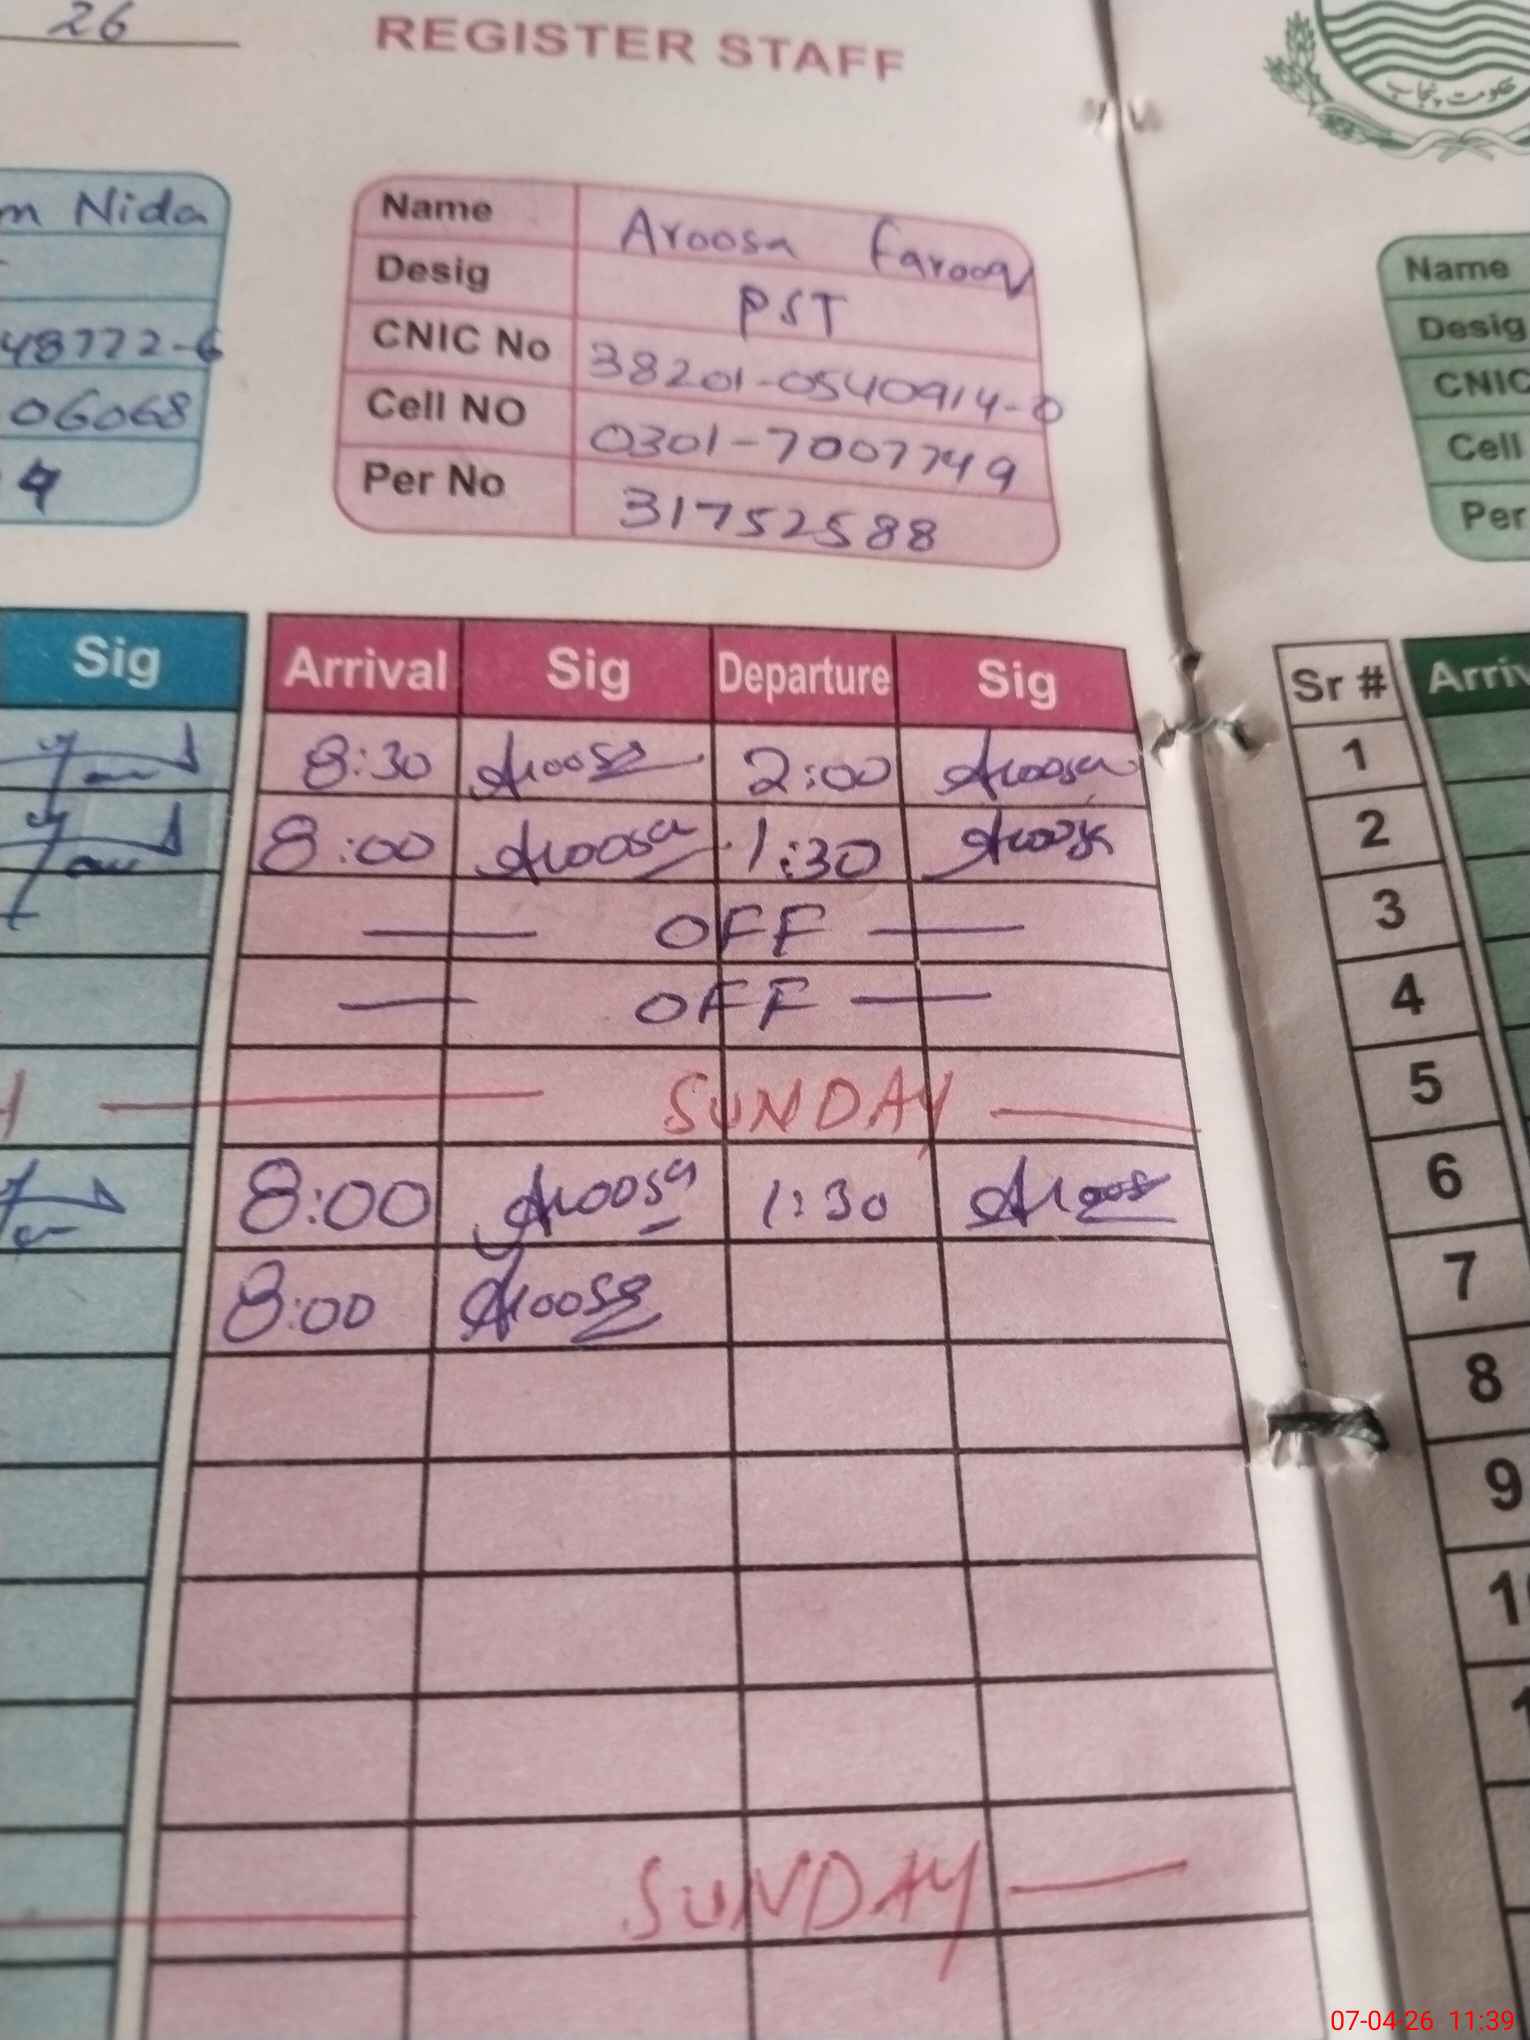 26
REGISTER STAFF
حکومت پنجاب
m Nida
48772-6
06068
4
Name Aroosa Farooq
Desig PST
CNIC No 38201-0540914-0
Cell NO 0301-7007749
Per No 31752588
Name
Desig
CNIC
Cell
Per
Sig
Arrival Sig Departure Sig
Sr # Arriv
8:30 Aroosa 2:00 Aroosa
8:00 Aroosa 1:30 Aroosa
OFF
OFF
SUNDAY
8:00 Aroosa 1:30 Aroosa
8:00 Aroosa
SUNDAY
1
2
3
4
5
6
7
8
9
1
1
07-04-26 11:39